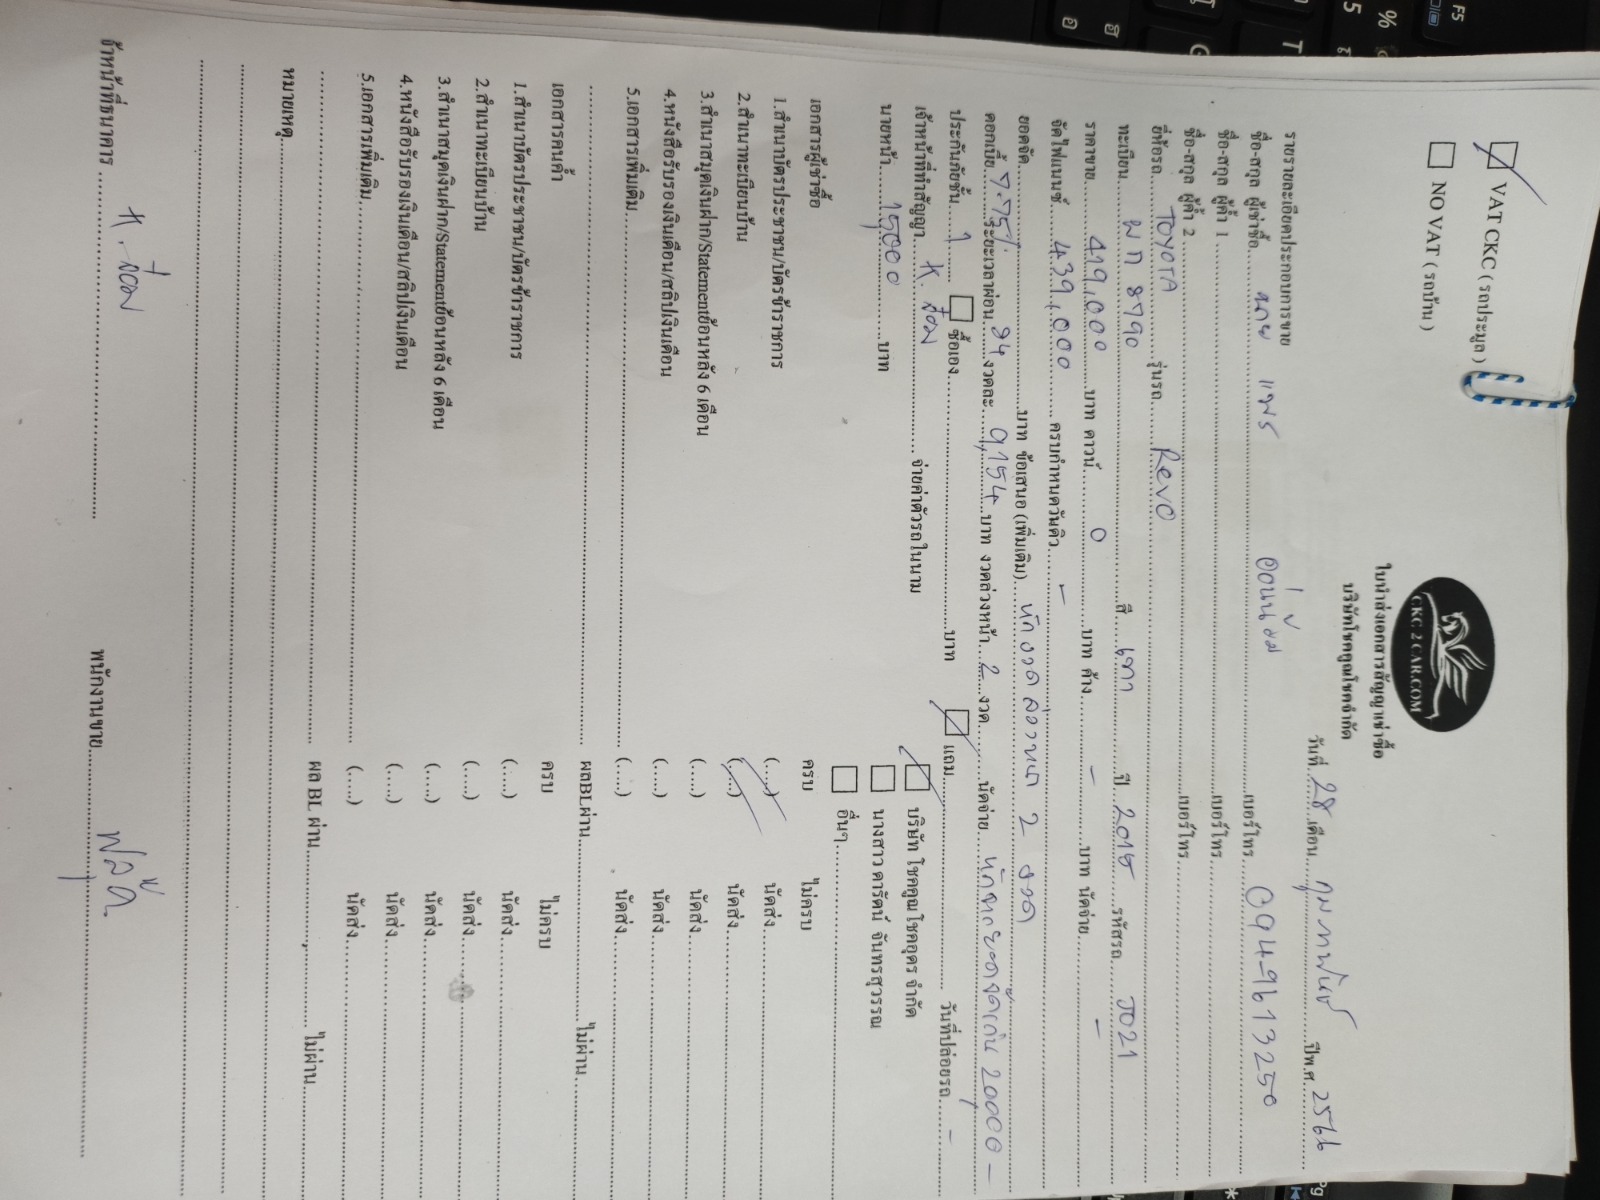 VAT CKC ( รถประมูล )
NO VAT ( รถบ้าน )
CKC 2 CAR.COM
ใบนำส่งเอกสารสัญญาเช่าซื้อ
บริษัทโชคคูณโชคจำกัด
วันที่ 28 เดือน กุมภาพันธ์ ปีพ.ศ. 2566
รายรายละเอียดประกอบการขาย
ชื่อ-สกุล ผู้เช่าซื้อ นาย แพร อ่อนน้อม เบอร์โทร 094-9613250
ชื่อ-สกุล ผู้ค้ำ 1 เบอร์โทร
ชื่อ-สกุล ผู้ค้ำ 2 เบอร์โทร
ยี่ห้อรถ TOYOTA รุ่นรถ Revo
ทะเบียน ผก 8790 สี เทา ปี 2015 รหัสรถ J021
ราคาขาย 419,000 บาท ดาวน์ 0 บาท ค้าง - บาท นัดจ่าย -
จัดไฟแนนซ์ 439,000 ครบกำหนดวันคิว -
ยอดจัด บาท ข้อเสนอ (เพิ่มเติม) หักงวดล่วงหน้า 2 งวด
ดอกเบี้ย 7.75% ระยะเวลาผ่อน 84 งวดละ 9,154 บาท งวดล่วงหน้า 2 งวด นัดจ่าย หักจากยอดจัดเกิน 20,000 -
ประกันภัยชั้น 1 ซื้อเอง บาท แถม วันที่ปล่อยรถ -
เจ้าหน้าที่ทำสัญญา K. ส้อม จ่ายค่าตัวรถในนาม บริษัท โชคคูณโชคอุดร จำกัด
นายหน้า 15,000 บาท นางสาวดารัตน์ จันทรสุวรรณ
อื่นๆ
เอกสารผู้เช่าซื้อ ครบ ไม่ครบ
1.สำเนาบัตรประชาชน/บัตรข้าราชการ (.....) นัดส่ง
2.สำเนาทะเบียนบ้าน (.....) นัดส่ง
3.สำเนาสมุดเงินฝาก/Statementย้อนหลัง 6 เดือน (.....) นัดส่ง
4.หนังสือรับรองเงินเดือน/สลิปเงินเดือน (.....) นัดส่ง
5.เอกสารเพิ่มเติม (.....) นัดส่ง
ผลBLผ่าน ไม่ผ่าน
เอกสารคนค้ำ ครบ ไม่ครบ
1.สำเนาบัตรประชาชน/บัตรข้าราชการ (.....) นัดส่ง
2.สำเนาทะเบียนบ้าน (....) นัดส่ง
3.สำเนาสมุดเงินฝาก/Statementย้อนหลัง 6 เดือน (....) นัดส่ง
4.หนังสือรับรองเงินเดือน/สลิปเงินเดือน (....) นัดส่ง
5.เอกสารเพิ่มเติม (....) นัดส่ง
ผล BL ผ่าน ไม่ผ่าน
หมายเหตุ
จ้าหน้าที่ธนาคาร K. ส้อม พนักงานขาย